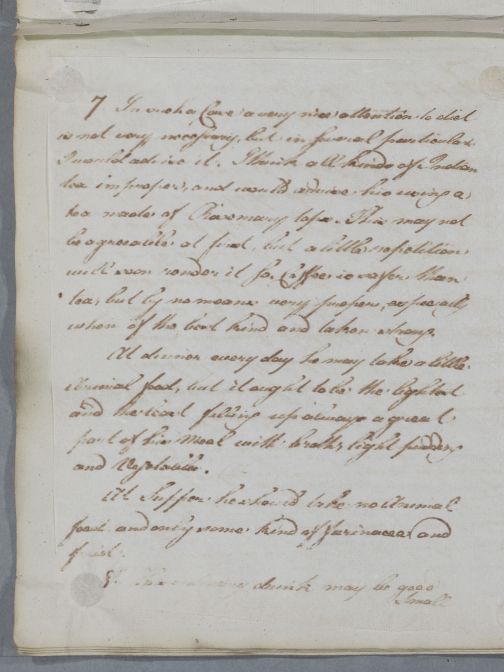 7 In such a Case a very nice attention to diet
is not very necessary, but in several particulars
I would advise it. I think all kinds of Indian
tea improper, and would advise his using a
tea made of Rosemary tops. This may not
be agreeable at first, but a little repetition
will soon render it so. Coffee is safer than
tea, but by no means very proper, especially
when of the best kind and taken strong.
At dinner every day he may take a little
Animal food, but it ought to be the lightest
and he is filling up always a great
part of his Meal with broth, light pudding
and Vegetables.
At Supper he should take no Animal
food and only some kind of farinacea and
fruit.
8. His ordinary drink may be good
Small